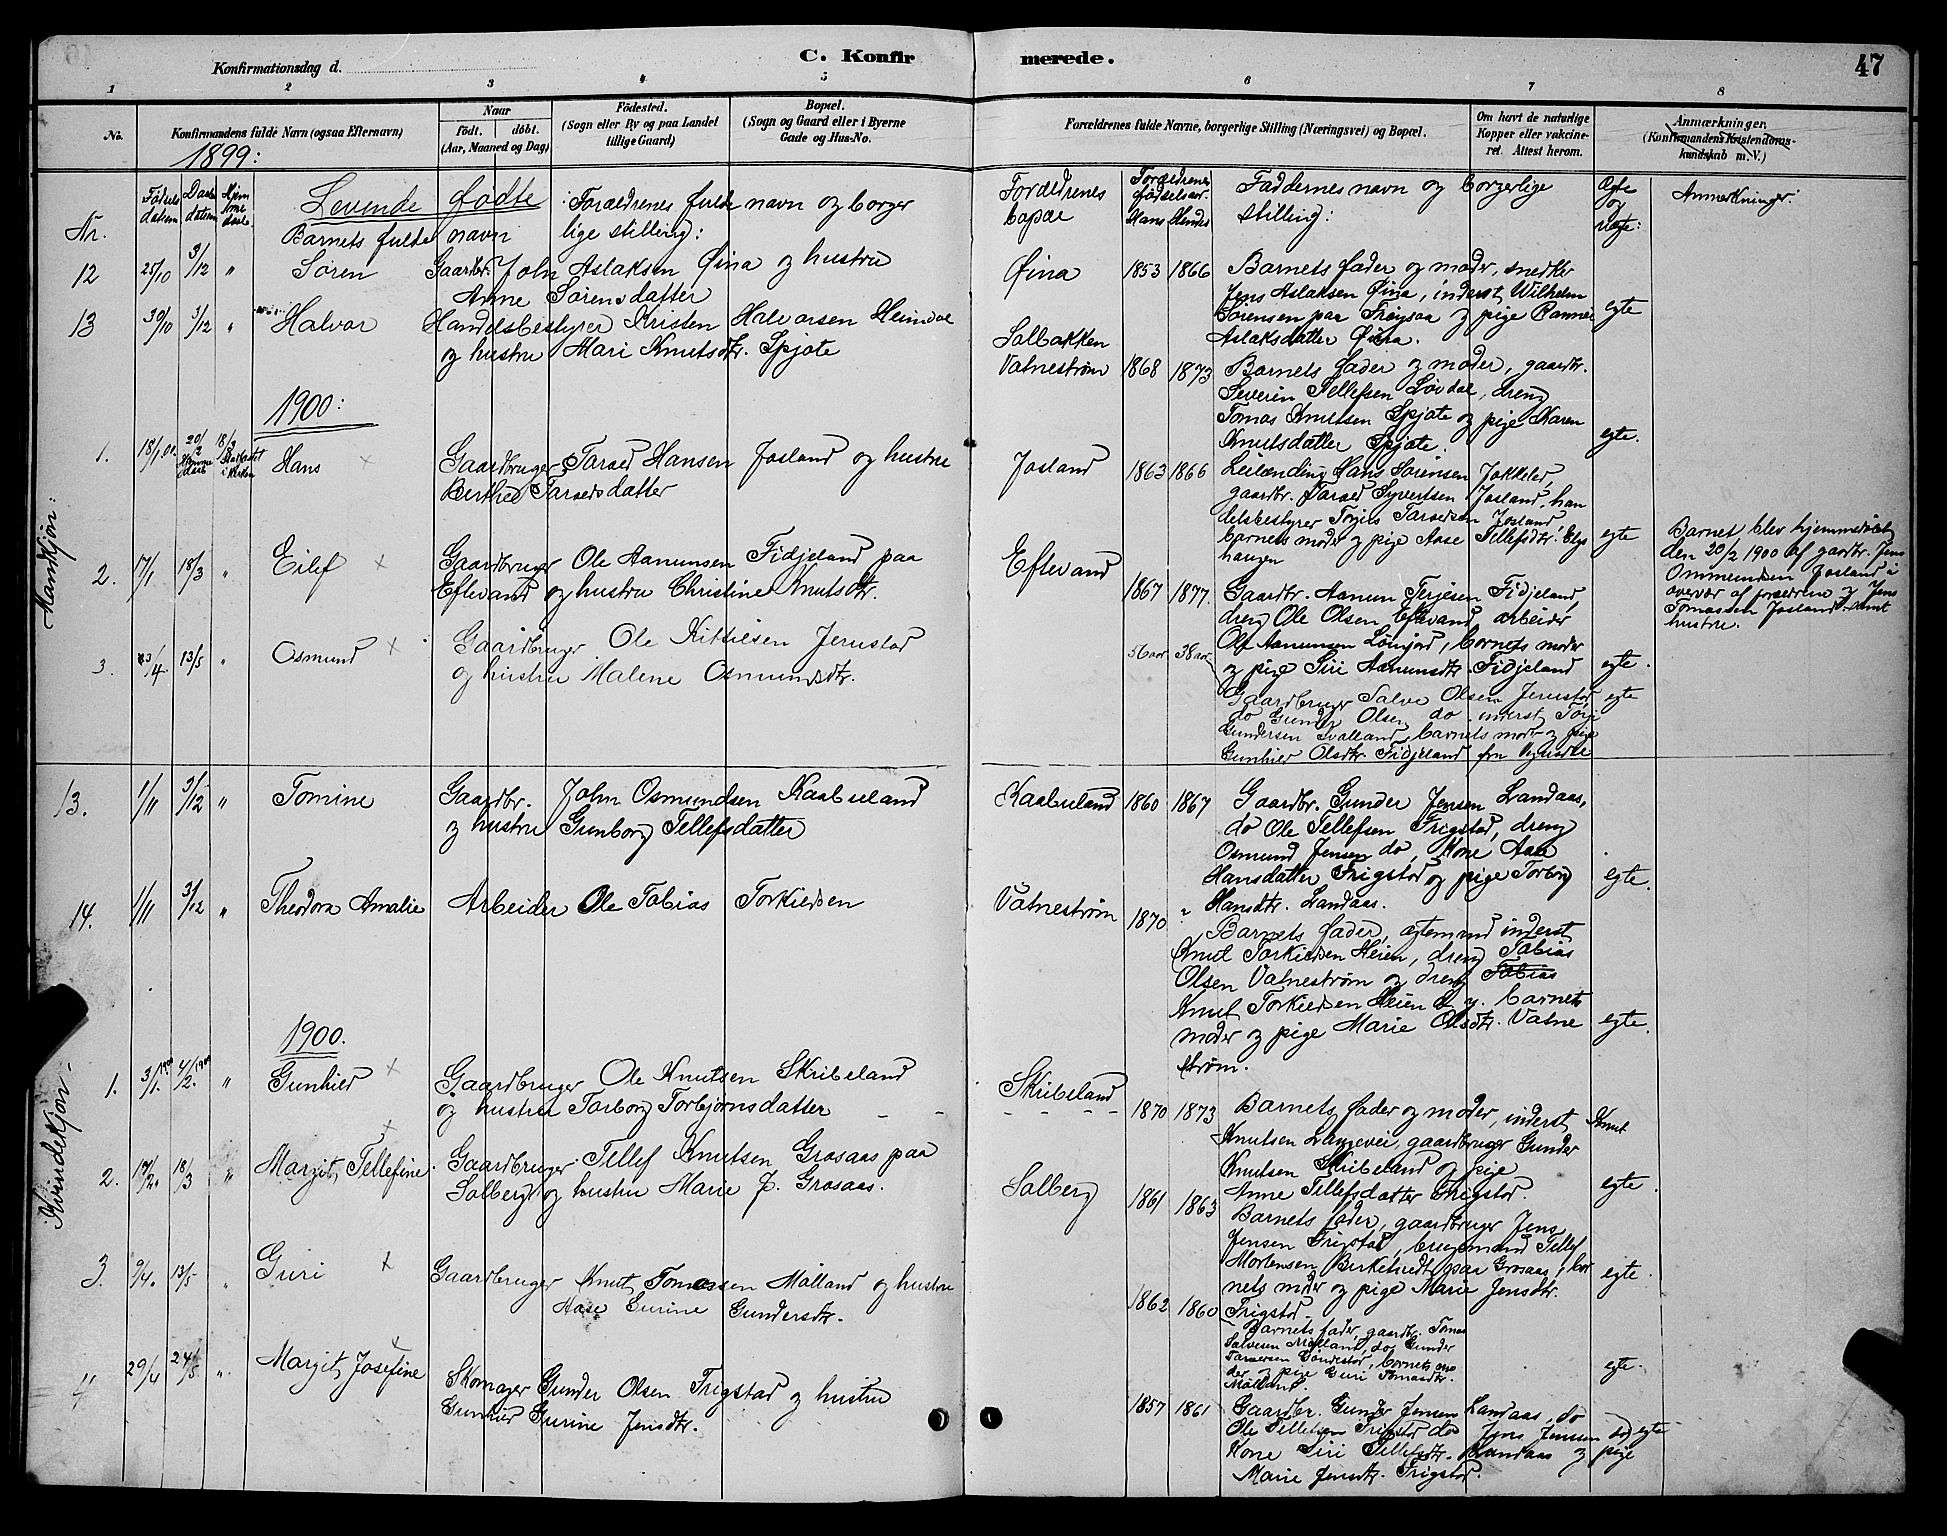 C. Konfirmerede.
47
Konfirmationsdag d.
1 2 3 4 5 6 7 8
No.
Konfirmandens fulde Navn (ogsaa Efternavn)
Naar
født. døbt.
(Aar, Maaned og Dag)
Fødested.
(Sogn eller By og paa Landet
tillige Gaard)
Bopæl.
(Sogn og Gaard eller i Byerne
Gade og Hus-No.
Forældrenes fulde Navne, borgerlige Stilling (Næringsvei) og Bopæl.
Om havt de naturlige
Kopper eller vakcine-
ret. Attest herom.
Anmærkninger.
(Konfirmandens Kristendoms-
kundskab m. V.)
1899:
Nr.
Fødsels
datum
Daabs
datum
Hjem
me
daab.
Levende fødte
Barnets fulde navn
Forældrenes fulde navn og borger
lige stilling:
Forældrenes
bopæl
Forældrenes
fødselsaar.
Hans Hendes
Faddernes navn og borgerlige
stilling:
Egte
og
uegte:
Anmerkninger:
Mandkjøn:
12 25/10 3/12 " Søren
Gaardbr. John Aslaksen Øina og hustru
Anne Sørensdatter
Øina 1853 1866
Barnets fader og moder, snedker
Jens Aslaksen Øina, inderst Wilhelm
Sørensen paa Frøysaa og pige
Aslaksdatter Øina.
egte
13 30/10 3/12 " Halvor
Handelsbestyrer Kristen Halvorsen Heimdal
og hustru Mari Knutsdtr. Spjote
Solbakken
Vatnestrøm 1868 1873
Barnets fader og moder, gaardbr.
Severin Tellefsen Løvdal, dreng
Tomas Knutsen Spjote og pige Karen
Knutsdatter Spjote.
egte.
1900:
1. 18/1 00. 20/2 Hjemme
døbt 18/3 Stadfæstet
i kirken Hans
Gaardbruger Tarald Hansen Josland og hustru
Berthe Taraldsdatter
Josland 1863 1866
Leilænding Hans Sørensen
gaardbr. Tarald Syvertsen Josland, han
delsbestyrer Torjus Taraldsen Josland,
barnets moder og pige Aase Tellefsdtr. Elgs
haugen
egte
Barnet blev hjemmedøbt
den 20/2 1900 af gardbr. Jens
Ommundsen Josland i
overvær af forældrene og Jens
Tomassen Josland samt
hustru.
2. 17/1 18/3 " Eilef
Gaardbruger Ole Aanunsen Fidjeland paa
Eftevand og hustru Christine Knutsdtr.
Eftevand
1867 1877.
Gaardbr. Aanun Terjesen Fidjeland,
dreng Ole Olsen Eftevand, arbeider
Ole Aanunsen Lønjord, barnets moder
og pige Siri Aanunsdtr. Fidjeland
egte.
3. 23/4 13/5 " Osmund
Gaardbruger Ole Kittilsen Jerustad
og hustru Malene Osmundsdtr.
56 aar 38 aar
Gaardbruger Salve Olsen Jerustad
do Gunder Olsen do inderst Torje
Gundersen Tvalland, barnets mor og pige
Gunhild Olsdtr. Fidjeland fra Vegusdal
egte
Kvindekjøn.
13. 1/11 3/12 " Tomine
Gaardbr. John Osmundsen Kaabuland
og hustru Gunborg Tellefsdatter
Kaabuland 1860 1867
Gaardbr. Gunder Jensen Landaas,
do Ole Tellefsen Frigstad, dreng
Osmund Jensen do, Kone Aase
Hansdatter Frigstad og pige Torborg
Hansdtr. Landaas.
egte.
14. 1/11 3/12 " Theodora Amalie
Arbeider Ole Tobias Torkildsen
Vatnestrøm 1870 ?
Barnets fader, egtemand inderst
Knud Torkildsen Heien, dreng Tobias
Olsen Vatnestrøm og dreng Tobias
Knut Torkildsen Heien d. y. barnets
moder og pige Marie Olsdtr. Vatne
strøm.
egte.
1900.
1. 3/1. 1900 4/2. 1900 " Gunhild
Gaardbruger Ole Knutsen Skribeland
og hustru Torborg Torbjørnsdatter
Skribeland
1870 1873
Barnets fader og moder, inderst Knut
Knutsen Langevei, gaardbruger Gunder
Knutsen Skribeland og pige
Anne Tellefsdatter Frigstad.
egte.
2. 17/2. 18/3 " Margit Tellefine.
Gaardbruger Tellef Knutsen Grosaas paa
Solberg og hustru Marie J. Grosaas.
Solberg 1861 1863
Barnets fader, gaardbruger Jens
Jensen Frigstad, brugsmand Tellef
Mortensen Birketvedt paa Grosaas, bar
nets moder og pige Marie Jensdtr.
Frigstad
egte.
3. 9/4. 13/5 " Guri
Gaardbruger Knut Tomassen Mølland og hustru
Aase Gurine Gundersdtr.
1862 1860
Barnets fader, gaardbr. Tomas
Salvesen Mølland, do Gunder
Taraldsen, barnets mo
der og pige Guri Tomasdtr.
Mølland.
egte.
4 29/4 24/5 " Margit Josefine
Skomager Gunder Olsen Frigstad og hustru
Gunhild Gurine Jensdtr.
1857 1861
Gaardbr. Gunder Jensen Landaas, do
Ole Tellefsen Frigstad do Jens Jensen do,
Kone Siri Tellefsdtr. Landaas og pige
Marie Jensdtr. Frigstad.
egte